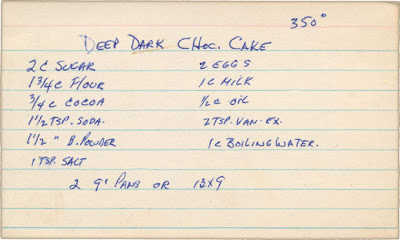 350°
DEEP DARK CHOC. CAKE
2 C SUGAR
1 3/4 C FLOUR
3/4 C COCOA
1 1/2 TSP. SODA.
1 1/2 " B. POWDER
1 TSP. SALT
2 EGGS
1 C MILK
1/2 C OIL
2 TSP. VAN. EX.
1 C BOILING WATER.
2 9" PANS OR 13X9